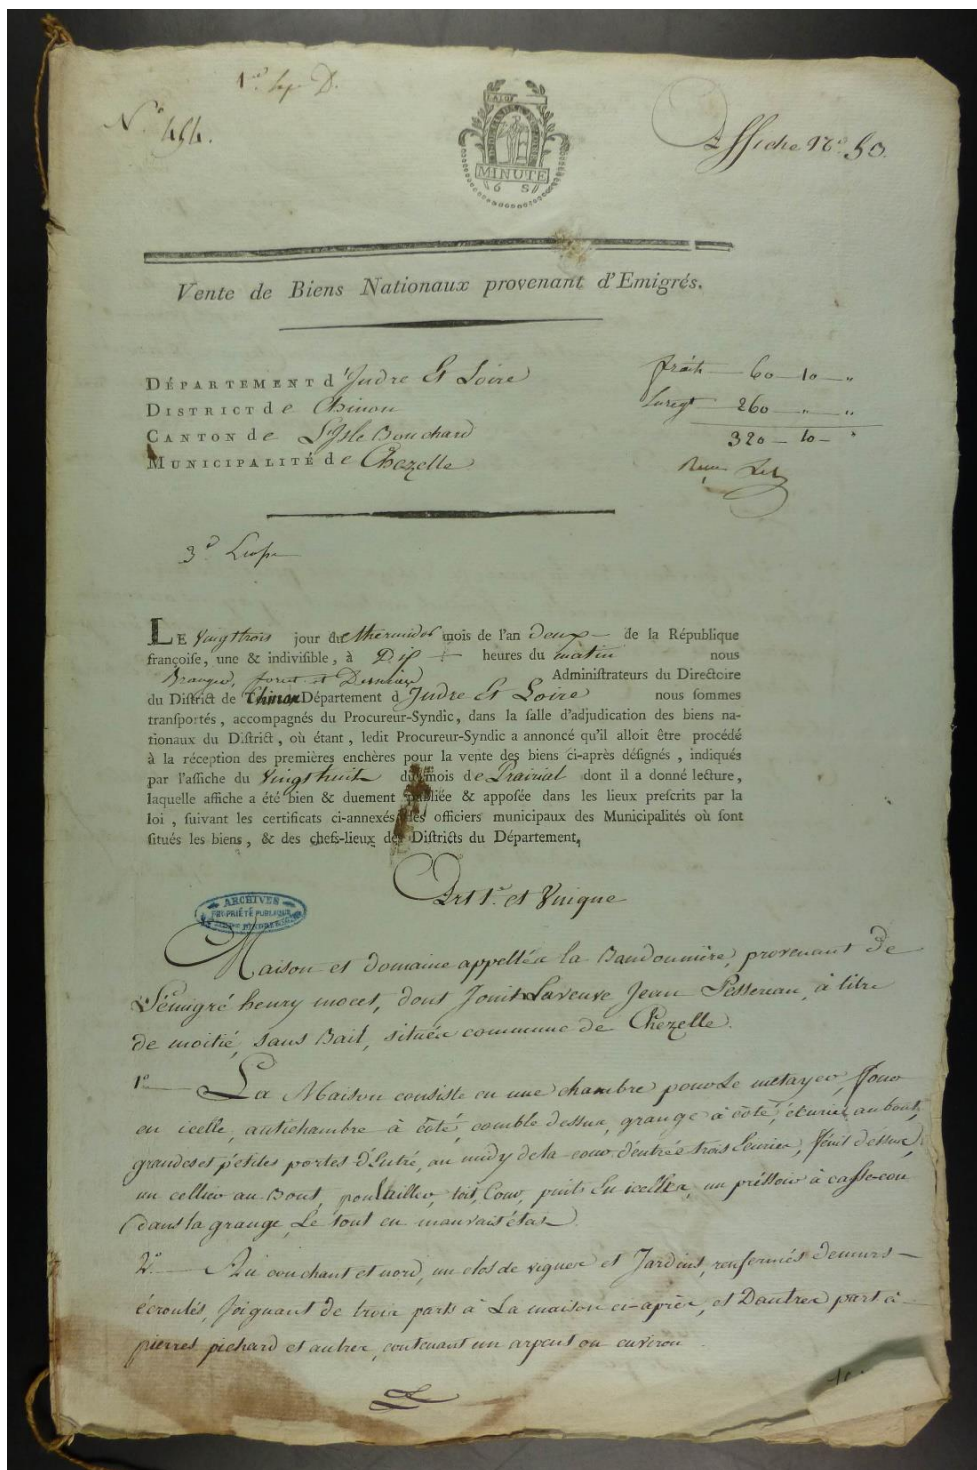 N.° 454.
Affiche N.° 50.
LA LOI
MINUTE
6 S
Vente de Biens Nationaux provenant d'Emigrés.
DÉPARTEMENT d'Indre Et Loire
DISTRICT de Chinon
CANTON de L'Isle Bouchard
MUNICIPALITÉ de Chezelle
60 — 10 — "
260 — " — "
320 — 10 — "
3.e
LE Vingttrois jour du thermidor mois de l'an deux — de la République
françoise, une & indivisible, à Dix heures du matin nous
Administrateurs du Directoire
du District de Chinon Département d Indre Et Loire nous sommes
transportés, accompagnés du Procureur-Syndic, dans la salle d'adjudication des biens na-
tionaux du District, où étant, ledit Procureur-Syndic a annoncé qu'il alloit être procédé
à la réception des premières enchères pour la vente des biens ci-après désignés, indiqués
par l'affiche du Vingthuit du mois de Prairial dont il a donné lecture,
laquelle affiche a été bien & duement publiée & apposée dans les lieux prescrits par la
loi, suivant les certificats ci-annexés des officiers municipaux des Municipalités où sont
situés les biens, & des chefs-lieux des Districts du Département,
Art 1.er et Unique
ARCHIVES
PROPRIÉTÉ PUBLIQUE
Maison et domaine appellée la Baudonnière, provenant de
L'émigré henry mocet, dont Jouit La veuve Jean Pessereau, à titre
de moitié, sans Bail, située commune de Chezelle.
1.° — La Maison consiste en une chambre pour Le metayer, four
en icelle, antichambre à côté, comble dessus, grange à côté, écurie au bout,
grandes et petites portes d'Entré, au midy de la cour d'entrée trois Ecuries, fenil dessus,
un cellier au Bout, poullailler, toit, Cour, puits En icelle, un pressoir à casse-cou
dans la grange, Le tout en mauvais état.
2.° — Au couchant et nord, un clos de vignes et Jardins, renfermés de murs —
écroulés, Joignant de trois parts à La maison ci-après, et Dautres part à
pierres pichard et autres, contenant un arpent ou environ.